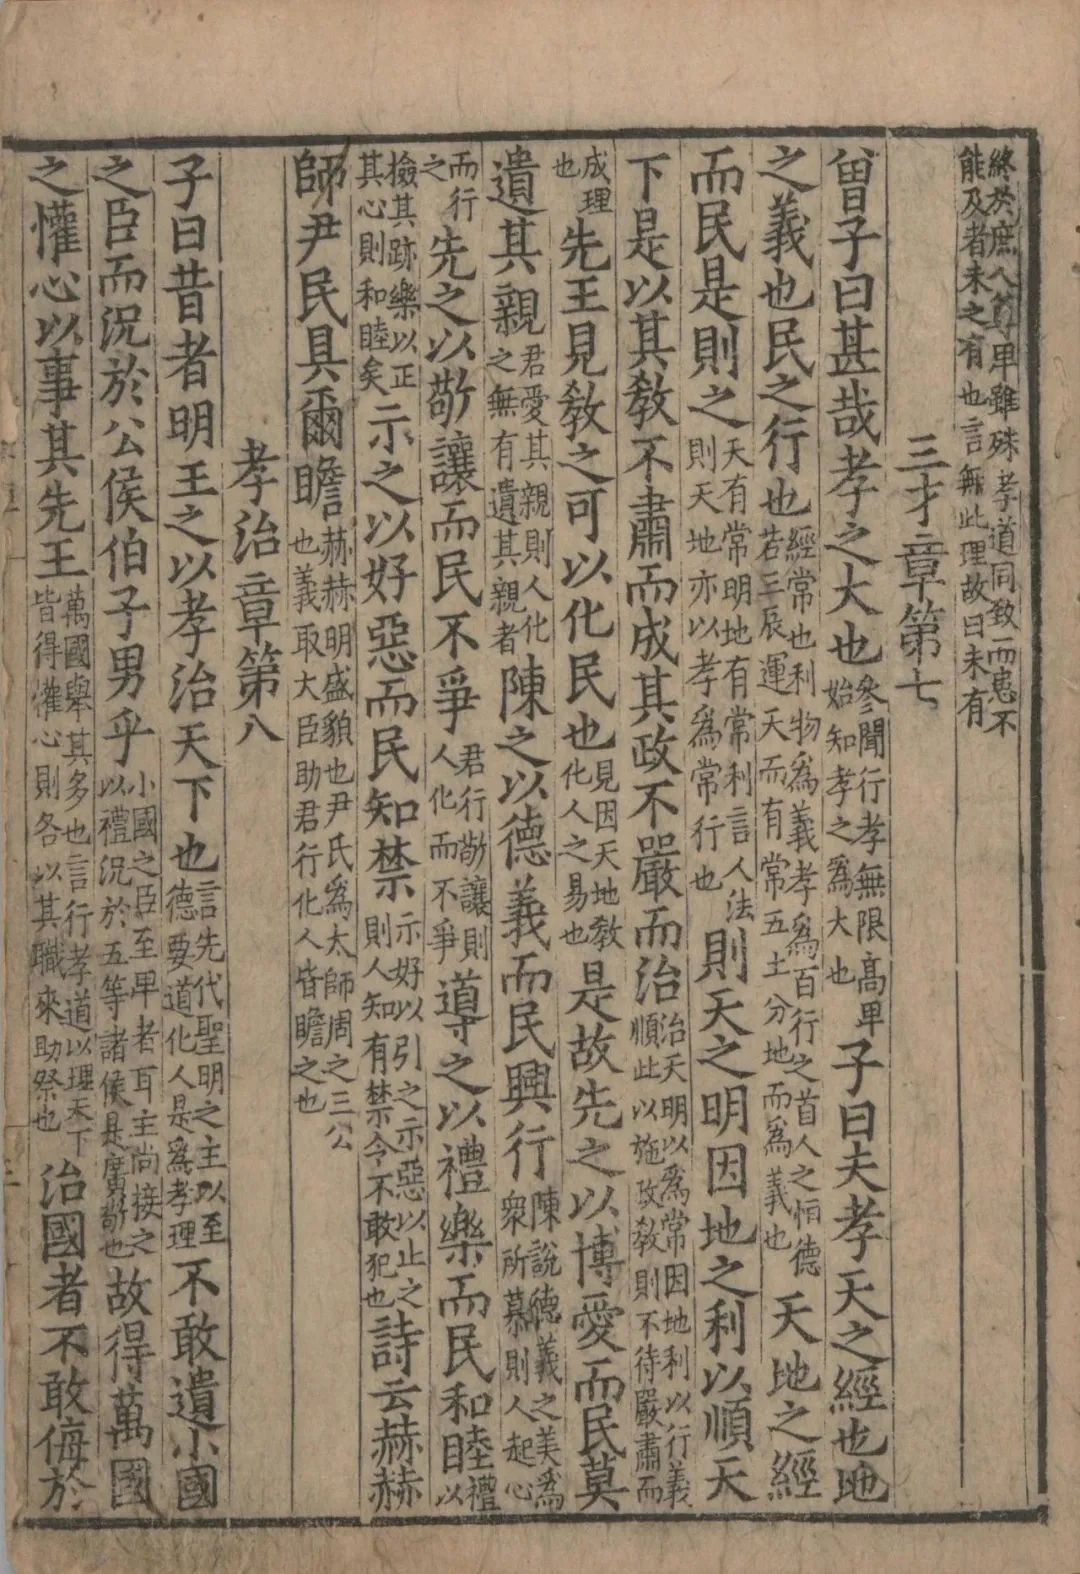 終於庶人尊卑雖殊孝道同致而患不
能及者未之有也言無此理故曰未有
三才章第七
曾子曰甚哉孝之大也參聞行孝無限高卑始知孝之爲大也子曰夫孝天之經也地
之義也民之行也經常也利物爲義孝爲百行之首人之恒德若三辰運天而有常五土分地而爲義也天地之經
而民是則之天有常明地有常利言人法則天地亦以孝爲常行也則天之明因地之利以順天
下是以其敎不肅而成其政不嚴而治法天明以爲常因地利以行義順此以施政敎則不待嚴肅而
成理也先王見敎之可以化民也見因天地敎化人之易也是故先之以博愛而民莫
遺其親君愛其親則人化之無有遺其親者陳之以德義而民興行陳說德義之美爲衆所慕則人起心
而行之先之以敬讓而民不爭君行敬讓則人化而不爭導之以禮樂而民和睦禮以
檢其跡樂以正其心則和睦矣示之以好惡而民知禁示好以引之示惡以止之則人知有禁令不敢犯也詩云赫赫
師尹民具爾瞻赫赫明盛貌也尹氏爲太師周之三公也義取大臣助君行化人皆瞻之也
孝治章第八
子曰昔者明王之以孝治天下也言先代聖明之主以至德要道化人是爲孝理不敢遺小國
之臣而況於公侯伯子男乎小國之臣至卑者耳主尚接之以禮況於五等諸侯是廣敬也故得萬國
之懽心以事其先王萬國舉其多也言行孝道以理天下皆得懽心則各以其職來助祭也治國者不敢侮於